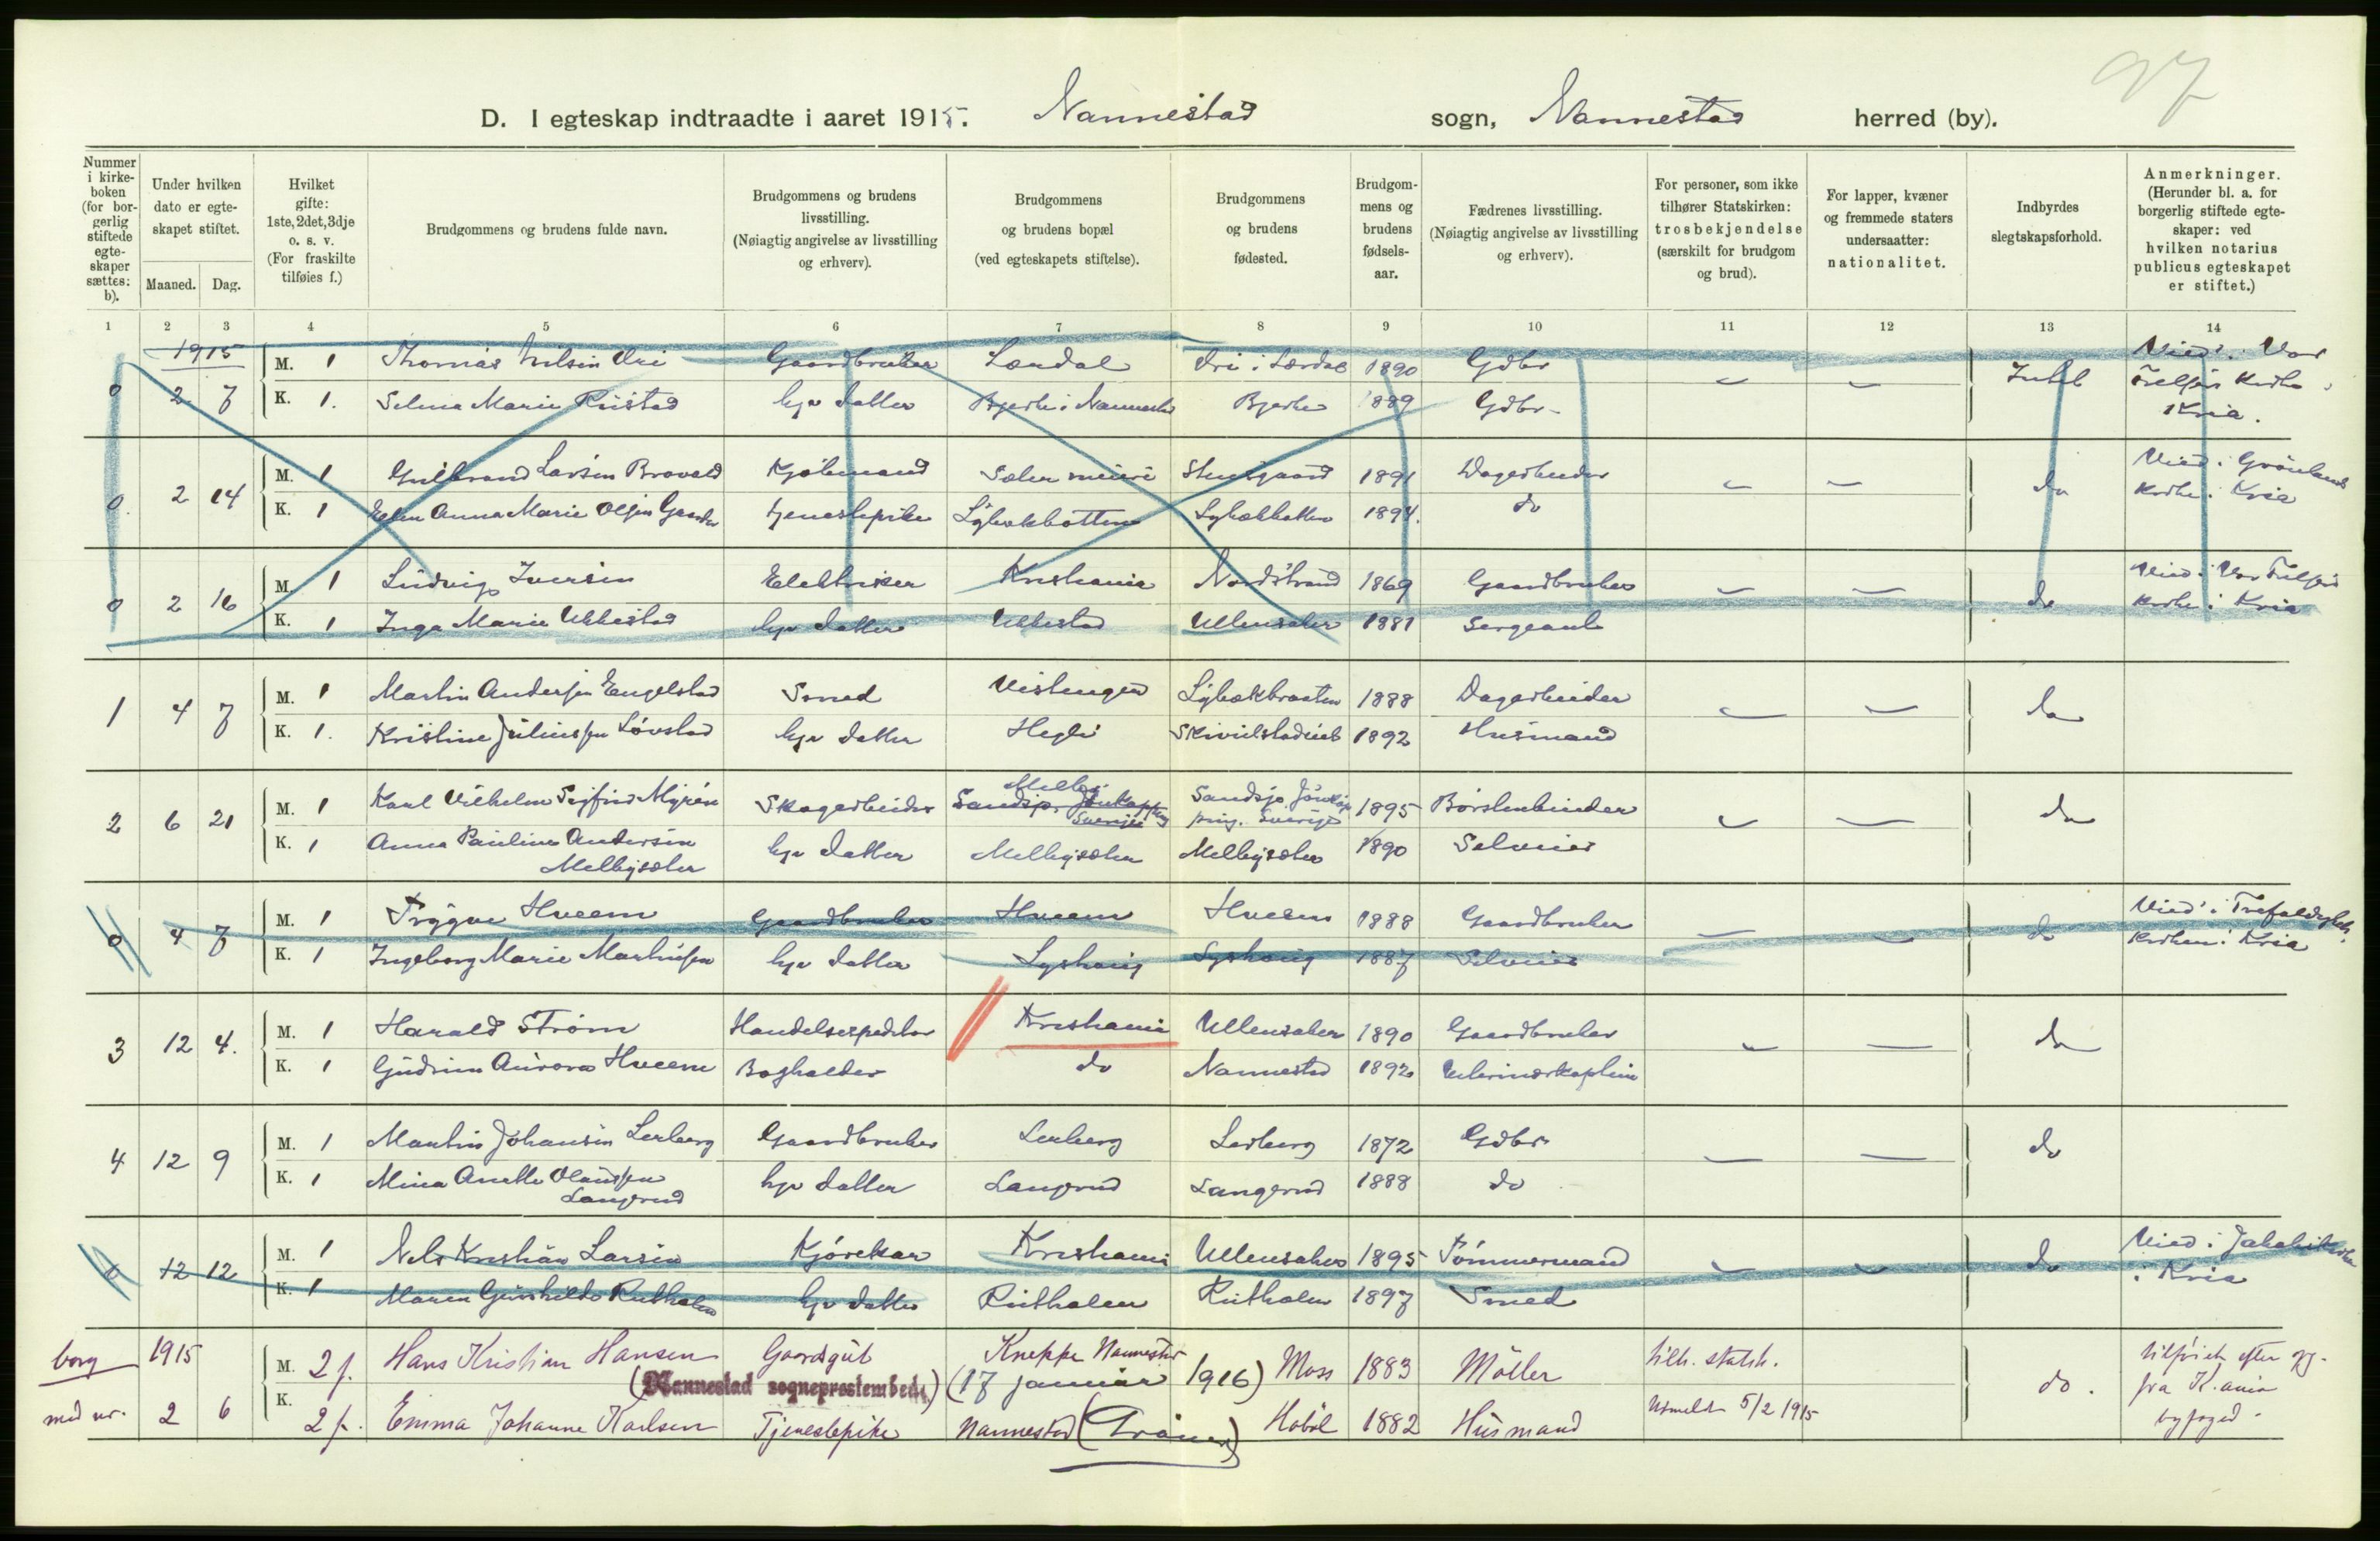 97
D. I egteskap indtraadte i aaret 1915. Nannestad sogn, Nannestad herred (by).
Nummer i kirkeboken (for borgerlig stiftede egteskaper sættes: b).
Under hvilken dato er egteskapet stiftet.
Maaned. Dag.
Hvilket gifte: 1ste, 2det, 3dje o. s. v. (For fraskilte tilføies f.)
Brudgommens og brudens fulde navn.
Brudgommens og brudens livsstilling. (Nøiagtig angivelse av livsstilling og erhverv).
Brudgommens og brudens bopæl (ved egteskapets stiftelse).
Brudgommens og brudens fødested.
Brudgommens og brudens fødselsaar.
Fædrenes livsstilling. (Nøiagtig angivelse av livsstilling og erhverv).
For personer, som ikke tilhører Statskirken: trosbekjendelse (særskilt for brudgom og brud).
For lapper, kvæner og fremmede staters undersaatter: nationalitet.
Indbyrdes slegtskapsforhold.
Anmerkninger. (Herunder bl. a. for borgerlig stiftede egteskaper: ved hvilken notarius publicus egteskapet er stiftet.)
1 2 3 4 5 6 7 8 9 10 11 12 13 14
1915
0 2 7 M. 1 Thomas Nilsen Eri Gaardbruker Lærdal Eri i Lærdal 1890 Gdbr Intet Viet i Vor Frelsers Kirke, Kria.
K. 1. Selma Marie Rustad hjv datter Bjerke i Nannestad Bjerke 1889 Gdbr
0. 2 14 M. 1 Gulbrand Larsen Brovold Kjøbmand Sæter meieri Stensgaard 1891 Dagarbeider do Viet i Grønlands Kirke i Kria
K. 1 Ellen Anna Marie Olsen tjenestepike Lybækbotten Lybækbotten 1894. do
0 2 16 M. 1 Ludvig Iversen Elektriker Kristiania Nordstrand 1869 Gaardbruker do Viet i Vor Frelsers Kirke i Kria
K. 1 Inga Marie Ukkestad hjv datter Ukkestad Ullensaker 1881 Sergeant
1 4 7 M. 1 Martin Andersen Engelstad Smed Vislungen Lybækbraaten 1888 Dagarbeider do
K. 1. Kristine Juliussen Løvstad hjv datter Hegli 1892 Husmand
2 6 21 M. 1 Karl Vilhelm Sigfrid Myrén Skogarbeider Melby Sandsjø, Jønkøping Sverige Sandsjø Jønkøping. Sverige 1895 Børstenbinder do
K. 1 Anna Pauline Andersen Melbysæter hjv datter Melbysæter Melbysæter 1890 Selveier
0 4 7 M. 1 Trygve Hveem Gaardbruker Hveem Hveem 1888 Gaardbruker do Viet i Trefoldigheds Kirken i Kria
K. 1 Ingeborg Marie Martinsen hjv datter Lyshaug Lyshaug 1887 Selveier
3 12 4. M. 1 Harald Strøm Handelsexpeditør Kristiania Ullensaker 1890 Gaardbruker do
K. 1 Gudrun Aurora Hveem Bogholder do Nannestad 1892 Veterinærkaptein
4 12 9 M. 1 Martin Johansen Lerberg Gaardbruker Lerberg Lerberg 1872 Gdbr do
K. 1 Mina Anette Olaussen Langerud hjv datter Langerud Langerud 1888 do
0 12 12 M. 1 Nels Kristian Larsen Kjørekar Kristiania Ullensaker 1895 Tømmermand do Viet i Jakobskirken i Kria
K. 1 Maren Gunhilde Rutholen hjv datter Rutholen Rutholen 1897 Smed
borg 1915 M. 2 f. Hans Kristian Hansen Gaardsgut Kneppe Nannestad Moss 1883 Møller tilh. statsk. do. tilføiet efter opg. fra K.ania byfoged.
(Nannestad sogneprestembede) (17 januar 1916)
med nr. 2 6 K. 2 f. Emma Johanne Karlsen Tjenestepike Nannestad Hobøl 1882 Husmand Utmeldt 5/2 1915